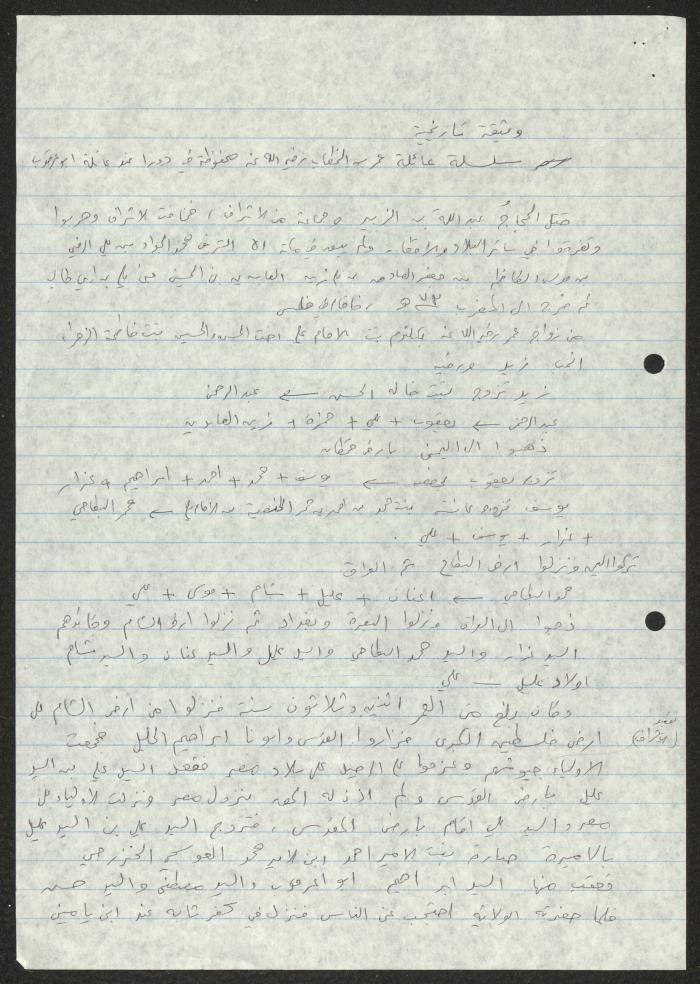 وثيقة تاريخية
سلسلة عائلة عمر بن الخطاب رضي الله عنه محفوظة في دورا عند عائلة ابو عرقوب
قتل الحجاج عبد الله بن الزبير وجماعة من الاشراف، فخافت الاشراف وهربوا
وتفرقوا في سائر البلاد والاقطار ولم يبق في مكة الا الشريف محمد الجواد بن علي الرضي
بن موسى الكاظم بن جعفر الصادق بن زين العابدين بن الحسين بن علي بن ابي طالب
ثم خرج الى المغرب ٧٣ هـ
من زواج عمر رضي الله عنه بكلثوم بنت الامام علي اخت الحسن والحسين بنت فاطمة الزهراء
انجب زيد ورقية
زيد تزوج بنت خاله الحسن عبد الرحمن
عبد الرحمن يعقوب + علي + حمزة + زين العابدين
ذهبوا الى اليمن بارض قحطان
تزوج يعقوب يوسف + محمد + احمد + ابراهيم + نزار
يوسف تزوج عائشة بنت محمد بن احمد بن محمد الحنفية بن الامام علي محمد البطاحي
+ نزار + يوسف + علي
تركوا اليمن ونزلوا ارض البطاح ثم العراق
محمد البطاحي عنان + عليل + شام + موسى + علي
ذهبوا الى العراق ونزلوا البصرة وبغداد ثم نزلوا ارض الشام وقائدهم
السيد نزار والسيد محمد البطاحي والسيد عليل والسيد عنان والسيد شام
اولاد عليل — علي
وكان بلغ من العمر اثنين وثلاثون سنة فنزلوا من ارض الشام على
ارض فلسطين الكبرى فزاروا القدس وابونا ابراهيم الخليل فجمعت (الاشراف)
الاولياء جيوشهم وعزموا على الرحيل على بلاد مصر فقعد السيد علي بن السيد
عليل بارض القدس ولم اذن له الحق بنزول مصر ونزلت الاولياء على
مصر والسيد علي اقام بارض القدس، فتزوج السيد علي بن السيد عليل
بالاميرة صارة بنت الامير احمد ابن الامير محمد العوسج الخزرجي
فعقب منها السيد ابراهيم ابو عرقوب والسيد مصطفى والسيد حسن
فلما حضرته الولاية احتجب عن الناس فنزل في كفر ثانه عند ابن يامين